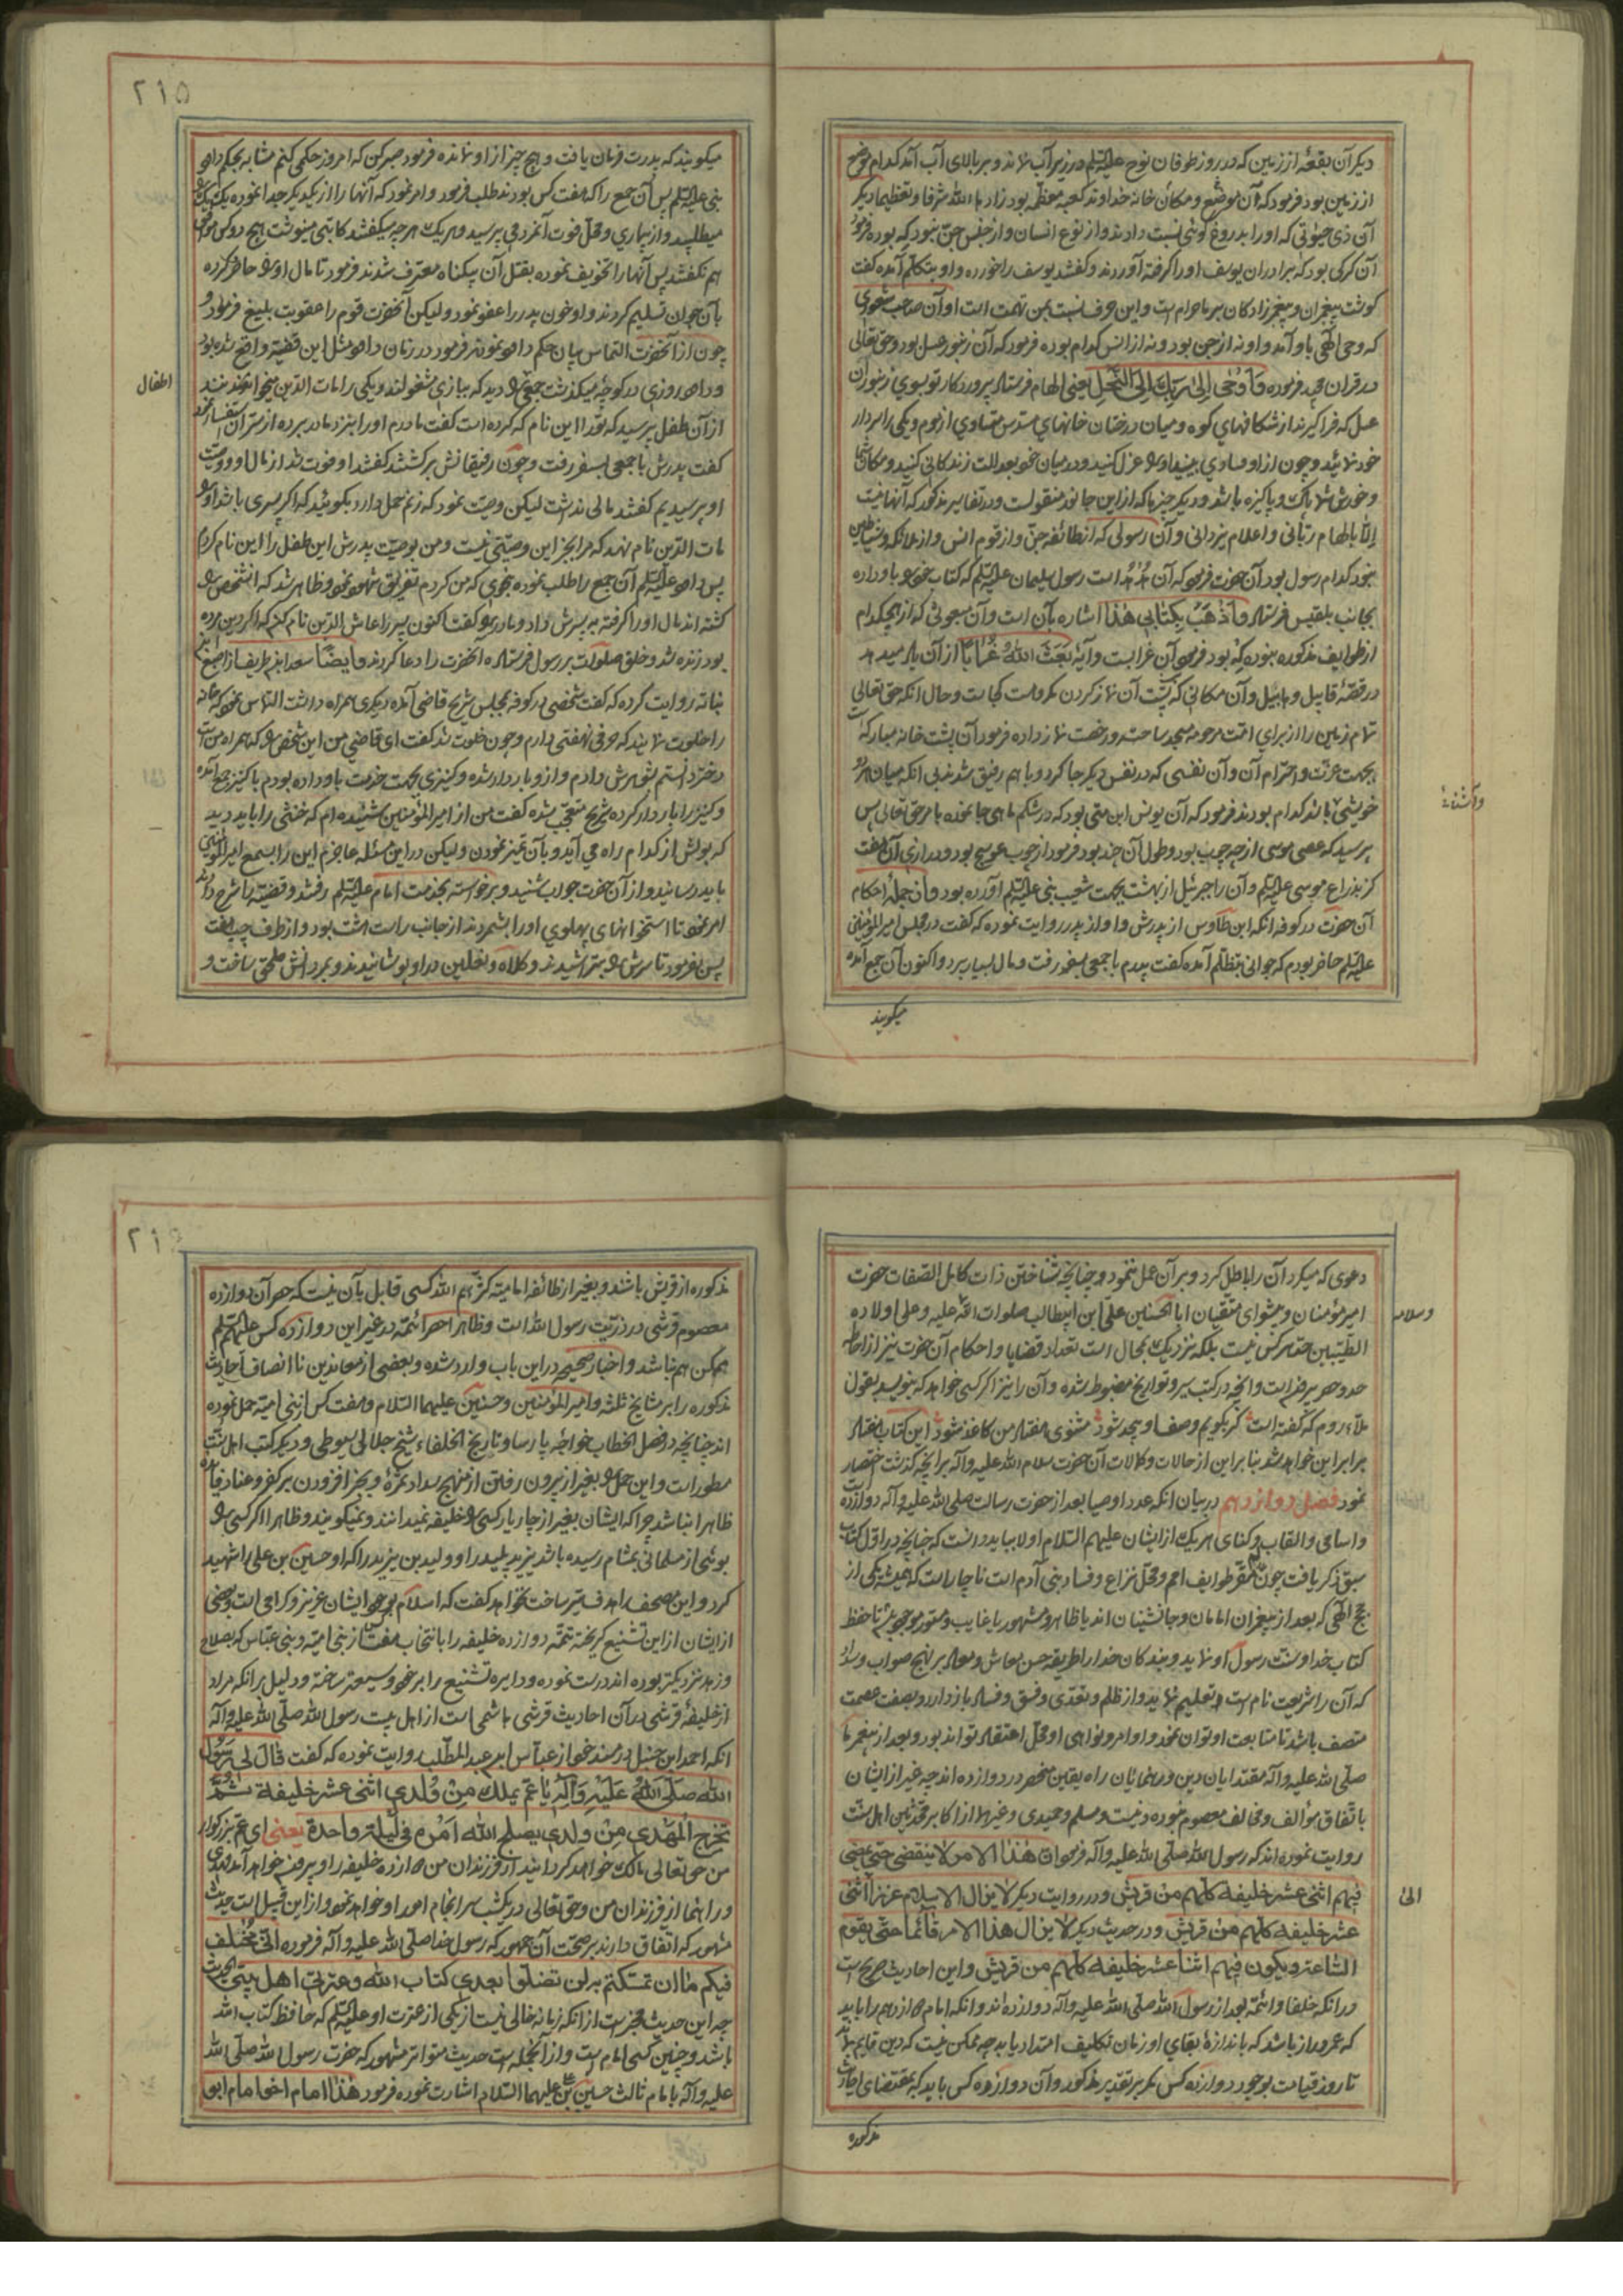 دیگر آن بقعهٔ از زمین که در روز طوفان نوح علیه السلم در زیر آب نماند و بر بالای آب آمد کدام موضع
از زمین بود فرمود که آن موضع و مکان خانه خداوند کعبه معظمه بود زادها الله شرفا و تعظیما دیگر
آن ذی حیوتی که او را بدروغ گوئی نسبت دادند و از نوع انسان و از جنس جن نبود که بوده فرمود
آن گرگی بود که برادران یوسف او را گرفته آوردند و گفتند یوسف را خورده و او بتکلم آمده گفت
گوشت پیغمبران و پیغمبرزادگان بر ما حرام است و این حرف نسبت بمن تهمت است و آن صاحب شعوری
که وحی الهی باو آمد و او نه از جن بود و نه از انس کدام بوده فرمود که آن زنبور عسل بود و حق تعالی
در قران مجید فرموده وَأَوْحَى رَبُّكَ إِلَى النَّحْلِ یعنی الهام فرستاد پروردگار تو بسوی زنبوران
عسل که فرا گیرند از شکافهای کوه و میان درختان خانهای مسدس متساوی از موم و یکی را سردار
خود نمائید و چون از او مساوی بینید او را عزل کنید و در میان خود بعدالت زندگانی کنید و مکان شما
و خورش شما پاک و پاکیزه باشد و دیگر چیزها که از این جانور منقولست و در تفاسیر مذکور که آنها نیست
الا بالهام ربانی و اعلام یزدانی و آن رسولی که از طائفه جن و از قوم انس و از ملائکه و شیاطین
نبود کدام رسول بود آن حضرت فرمود که آن هدهد است رسول سلیمان علیه السلم که کتاب خود باو داده
بجانب بلقیس فرستاد و اذْهَبْ بِكِتَابِي هٰذَا اشاره بآن است و آن مبعوثی که از هیچکدام
از طوایف مذکوره نبوده که بود فرمود آن غرابست و آیهٔ بَعَثَ اللهُ غُرَابًا از آن یاد میدهد
در قصهٔ قابیل و هابیل و آن مکانی که پشت آن نماز کردن مکروهست کجاست و حال انکه حق تعالی
تمام زمین را از برای امت مرحومه مسجد ساخته و رخصت نماز داده فرمود آن پشت خانه مبارکه است
بجهت عزت و احترام آن و آن نفسی که در نفس دیگر جا کرد و با هم رفیق شدند بی انکه میان هر دو
خویشی باشد کدام بودند فرمود که آن یونس ابن متی بود که در شکم ماهی جا نموده بامر حق تعالی پس
پرسید که عصی موسی از چه چوب بود و طول آن چند بود فرمود از چوب عوسج بود و درازی آن هفت
گز بذراع موسی علیه السلم و آن را جبرئیل از بهشت بجهت شعیب نبی علیه السلم آورده بود و از جملهٔ احکام
آن حضرت در کوفه انکه ابن طاوس از پدرش و او از پدر روایت نموده که گفت در مجلس امیرالمؤمنین
علیه السلم حاضر بودم که جوانی بتظلم آمده گفت پدرم با جمعی بسفر رفت و مال بسیار برد و اکنون آن جمع آمده
میگویند
و آشنائی
۲۱۵
میگویند که پدرت فرمان یافت و هیچ چیز از او نمانده فرمود صبر کن که امروز حکمی کنم مشابه بحکم داود
نبی علیه السلم پس آن جمع را که هفت کس بودند طلب فرمود و امر نمود که آنها را از یکدیگر جدا نموده یک یک را
میطلبید و از بیماری و محل فوت آنمرد می پرسید و هر یک هر چه میگفتند کاتبی مینوشت هیچ دو کس موافق
هم نگفتند پس آنها را تخویف نموده بقتل آن بیگناه معترف شدند فرمود تا مال او را حاضر کرده
بآن جوان تسلیم کردند و او خون پدر را عفو نمود و لیکن آنحضرت قوم را عقوبت بلیغ فرمود و
چون از آنحضرت التماس بیان حکم داود نمودند فرمود در زمان داود مثل این قضیه واقع شده بود
و داود روزی در کوچهٔ میگذشت جمعی را دید که ببازی مشغولند و یکی را مات الدین میخوانند
اطفال
از آن طفل پرسید که تو را این نام که کرده است گفت مادرم او را بنزد مادر برده از سر آن استفسار نمود
گفت پدرش با جمعی بسفر رفت و چون رفیقانش برگشتند گفتند او فوت شد از مال او و وصیت
او پرسیدیم گفتند مالی نداشت لیکن وصیت نمود که زنم حمل دارد بگوئید که اگر پسری باشد او را
مات الدین نام نهد که مرا بجز این وصیتی نیست و من بوصیت پدرش این طفل را این نام کردم
پس داود علیه السلم آن جمع را طلب نموده بنحوی که من کردم تفریق شهود نمود و ظاهر شد که آنشخص را
کشته اند مال او را گرفته به پسرش داد و مادر را گفت اکنون پسر را عاش الدین نام کنم که اگر دین مرده
بود زنده شد و خلق صلوات بر رسول فرستاده آنحضرت را دعا کردند و ایضًا سعد ابن طریف از اصبغ ابن
نباته روایت کرده که گفت شخصی در کوفه بمجلس شریح قاضی آمده دیگری همراه داشت التماس نمود که خانه
را خلوت نمایند که حرفی نهفتنی دارم و چون خلوت شد گفت ای قاضی من این شخص را که همراه من است
دختر دانستم بشوهرش دادم و از او باردار شده و کنیزی بجهت خدمت باو داده بودم با کنیز جمع آمده
و کنیز را باردار کرده شریح متعجب شده گفت من از امیرالمؤمنین شنیده ام که خنثی را باید دید
که بولش از کدام راه می آید و بآن تمیز نمودن و لیکن در این مسئله عاجزم این را بسمع امیرالمؤمنین
باید رسانید و از آن حضرت جواب شنید و برخواسته بخدمت امام علیه السلم رفتند و قضیه را شرح دادند
امر نمود تا استخوانهای پهلوی او را بشمردند از جانب راست هشت بود و از طرف چپ هفت
پس بفرمود تا سرش را بتراشیدند و کلاه و نعلین در او پوشانیدند و بمردانش ملحق ساخت و
دعوی که میکرد آن را باطل کرد و بر آن عمل ننمود و چنانچه شناختن ذات کامل الصفات حضرت
امیر مؤمنان و پیشوای متقیان ابا الحسنین علی ابن ابیطالب صلوات الله علیه و علی اولاده
و سلامه
الطیبین حد هر کس نیست بلکه نزدیک بمحال است تعداد قضایا و احکام آن حضرت نیز از احاطه
حد و حصر بیرونست و انچه در کتب سیر و تواریخ مضبوط شده و آن را نیز اگر کسی خواهد که بنویسد بقول
ملاء روم که گفته است گر بگویم وصف او بیحد شود مثنوی هفتاد من کاغذ شود این کتاب هفتاد
برابر این خواهد شد بنابر این از حالات و کمالات آن حضرت سلام الله علیه و آله بر انچه گذشت اختصار
نمود فصل دوازدهم در بیان انکه عدد اوصیا بعد از حضرت رسالت صلی الله علیه و آله دوازده است
و اسامی و القاب و کنای هر یک از ایشان علیهم السلام اولا بباید دانست که چنانچه در اول کتاب
سبق ذکر یافت چون مقر طوایف امم و محل نزاع و فساد بنی آدم است ناچار است که همیشه یکی از
حجج الهی که بعد از پیغمبران امامان و جانشینان اند یا ظاهر و مشهور یا غایب و مستور موجود باشد تا حفظ
کتاب خدا و سنت رسول او نماید و بندگان خدا را طریقه حسن معاش و معاد بر نهج صواب و سداد
که آن را شریعت نام است تعلیم نماید و از ظلم و تعدی و فسق و فساد باز دارد و بصفت عصمت
متصف باشد تا متابعت او توان نمود و اوامر و نواهی او محل اعتقاد تواند بود و بعد از پیغمبر ما
صلی الله علیه و آله مقتدایان دین و رهنمایان راه یقین منحصر در دوازده اند چه غیر از ایشان
باتفاق مؤالف و مخالف معصوم نبوده و نیست و مسلم و حمیدی و غیرهما از اکابر محدثین اهل سنت
روایت نموده اند که رسول الله صلی الله علیه و آله فرمود ان هٰذا الامر لا ینقضی حتی یمضی
فیهم اثنی عشر خلیفه کلهم من قریش و در روایت دیگر لا یزال الاسلام عزیزا اثنی
الی
عشر خلیفه کلهم من قریش و در حدیث دیگر لا یزال هذا الامر قائما حتی یقوم
الساعة و یکون فیهم اثنا عشر خلیفه کلهم من قریش و این احادیث صریح است
در انکه خلفا و ائمه بعد از رسول الله صلی الله علیه و آله دوازده اند و انکه امام دوازدهم را باید
که عمر دراز باشد که باندازهٔ بقای او زمان تکلیف امتداد یابد چه ممکن نیست که دین قایم ماند
تا روز قیامت بوجود دوازده کس مگر بر تقدیر مذکور و آن دوازده کس باید که بمقتضای احادیث
مذکوره
۲۱۶
مذکوره از قریش باشند و بغیر از طائفه امامیه کثرهم الله کسی قایل بآن نیست که هر آن دوازده
معصوم و قرشی در ذریت رسول الله است و ظاهرا حصر ائمه در غیر این دوازده کس علیهم السلم
ممکن هم نباشد و اخبار صحیحه در این باب وارد شده و بعضی از معاندین نا انصاف احادیث
مذکوره را بر مشایخ ثلثه و امیرالمؤمنین و حسنین علیهما السلام و هفت کس از بنی امیه حمل نموده
اند چنانچه در فصل الخطاب خواجه پارسا و تاریخ الخلفاء شیخ جلال سیوطی و دیگر کتب اهل سنت
مسطور است و این حمل را بغیر از بیرون رفتن از منهج سداد ثمرهٔ و بجز افزودن بر کفر و عناد فایده
ظاهرا نباشد چرا که ایشان بغیر از چار یار کسی را خلیفه نمیدانند و نمیگویند و ظاهرا اگر کسی را
بوئی از مسلمانی بمشام رسیده باشد یزید پلید را و ولید بن یزید را که او حسین بن علی را شهید
کرد و این مصحف را هدف تیر ساخت نخواهد گفت که اسلام بوجود ایشان عزیز و گرامی است و بعضی
از ایشان از این تشنیع گریخته تتمه دوازده خلیفه را بانتخاب هفت کس از بنی امیه و بنی عباس که بصلاح
و زهد نزدیکتر بوده اند درست نموده و دایره تشنیع را بر خود وسیعتر ساخته و دلیل بر انکه مراد
از خلیفهٔ قرشی در آن احادیث قرشی هاشمی است از اهل بیت رسول الله صلی الله علیه و آله
انکه احمد ابن حنبل در مسند خود از عباس ابن عبد المطلب روایت نموده که گفت قال لی رسول
الله صلی الله علیه و آله یا عم یملک من ولدی اثنی عشر خلیفة ثم
یخرج المهدی من ولدی یصلح الله امره فی لیلة واحدة یعنی ای عم بزرگوار
من حق تعالی مالک خواهد گردانید از فرزندان من دوازده خلیفه را و بیرون خواهد آمد مهدی
و راهنما از فرزندان من و حق تعالی در یکشب سرانجام امور او خواهد نمود و از این قبیل است حدیث
مشهور که اتفاق دارند بر صحت آن جمهور که رسول خدا صلی الله علیه و آله فرموده انی مخلف
فیکم ما ان تمسکتم به لن تضلوا بعدی کتاب الله و عترتی اهل بیتی الحدیث
چه این حدیث مخبر است از انکه زمانه خالی نیست از یکی از عترت او علیه السلم که حافظ کتاب الله
باشد و چنین کسی امام است و از آنجمله است حدیث متواتر مشهور که حضرت رسول الله صلی الله
علیه و آله بامام ثالث حسین بن علی علیهما السلام اشارت نموده فرمود هٰذا امام اخو امام ابو